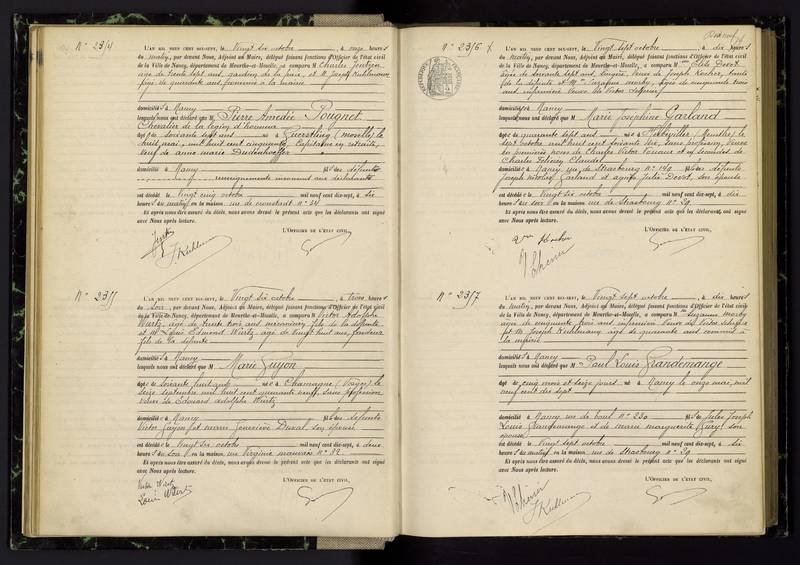 N° 2314
L'AN MIL NEUF CENT DIX-SEPT, le Vingt six octobre, à onze heures
du matin, par devant Nous, Adjoint au Maire, délégué faisant fonctions d'Officier de l'état civil
de la Ville de Nancy, département de Meurthe-et-Moselle, a comparu M Charles
âgé de trente sept ans, gardien de la paix, et M. Joseph Kuhlmann
âgé de quarante ans, commis à la mairie
domiciliés à Nancy
lesquels nous ont déclaré que M Pierre Amédée Pougnet
Chevalier de la légion d'honneur
âgé de soixante sept ans né à Guerstling (Moselle) le
huit mai, mil huit cent cinquante, Capitaine en retraite,
veuf de anne marie
domicilié à Nancy fils des défunts
renseignements inconnus aux déclarants
est décédé le vingt cinq octobre mil neuf cent dix-sept, à six
heures du matin en la maison rue de constant n° 34
Et après nous être assuré du décès, nous avons dressé le présent acte que les déclarants ont signé
avec Nous après lecture.
L'OFFICIER DE L'ÉTAT CIVIL,
J. Kuhlmann
N° 2315
L'AN MIL NEUF CENT DIX-SEPT, le Vingt six octobre, à trois heures
du soir, par devant Nous, Adjoint au Maire, délégué faisant fonctions d'Officier de l'état civil
de la Ville de Nancy, département de Meurthe-et-Moselle, a comparu M Victor Adolphe
Wurtz, âgé de trente trois ans mécanicien fils de la défunte
et M. Louis Edmond Wurtz âgé de vingt huit ans, fondeur
fils de la défunte
domiciliés à Nancy
lesquels nous ont déclaré que M Marie Guyon
âgée de soixante huit ans née à Chamagne (Vosges) le
seize septembre mil huit cent quarante neuf, sans profession
veuve de Edouard adolphe Wurtz
domiciliée à Nancy fille des défunts
Victor Guyon et marie Geneviève Duval son épouse
est décédée le vingt six octobre mil neuf cent dix-sept, à deux
heures du soir en la maison rue Virginie mauvais n° 32
Et après nous être assuré du décès, nous avons dressé le présent acte que les déclarants ont signé
avec Nous après lecture.
L'OFFICIER DE L'ÉTAT CIVIL,
Victor Wurtz
Louis Wurtz
N° 2316
L'AN MIL NEUF CENT DIX-SEPT, le Vingt sept octobre, à dix heures
du matin, par devant Nous, Adjoint au Maire, délégué faisant fonctions d'Officier de l'état civil
de la Ville de Nancy, département de Meurthe-et-Moselle, a comparu M
âgée de soixante sept ans, lingère, veuve de Joseph Kocher, tante
de la défunte et Mme Suzanne marby, âgée de cinquante trois
ans infirmière veuve de Victor
domiciliés à Nancy
lesquels nous ont déclaré que M Marie Joséphine Garland
âgée de quarante sept ans née à (Meurthe) le
sept octobre mil huit cent soixante dix, sans profession, veuve
en premières noces de Charles Victor et en secondes de
Charles Claudel
domiciliée à Nancy rue de Strasbourg n° 140 fille des défunts
Joseph Nicolas Garland et agnès Julie Devot, son épouse
est décédée le vingt six octobre mil neuf cent dix-sept, à dix
heures du soir en la maison rue de Strasbourg n° 29
Et après nous être assuré du décès, nous avons dressé le présent acte que les déclarants ont signé
avec Nous après lecture.
L'OFFICIER DE L'ÉTAT CIVIL,
Vve Kocher
N° 2317
L'AN MIL NEUF CENT DIX-SEPT, le Vingt sept octobre, à dix heures
du matin, par devant Nous, Adjoint au Maire, délégué faisant fonctions d'Officier de l'état civil
de la Ville de Nancy, département de Meurthe-et-Moselle, a comparu Mme Suzanne marby
âgée de cinquante trois ans infirmière Veuve de Victor
et M. Joseph Kuhlmann âgé de quarante ans commis à
la mairie
domiciliés à Nancy
lesquels nous ont déclaré que M Paul Louis Grandemange
âgé de cinq mois et seize jours né à Nancy le onze mai, mil
neuf cent dix sept
domicilié à Nancy rue de boul n° 230 fils de Jules Joseph
Louis Grandemange et de marie marguerite son
épouse
est décédé le vingt sept octobre mil neuf cent dix-sept, à six
heures du matin en la maison rue de Strasbourg n° 29
Et après nous être assuré du décès, nous avons dressé le présent acte que les déclarants ont signé
avec Nous après lecture.
L'OFFICIER DE L'ÉTAT CIVIL,
J. Kuhlmann